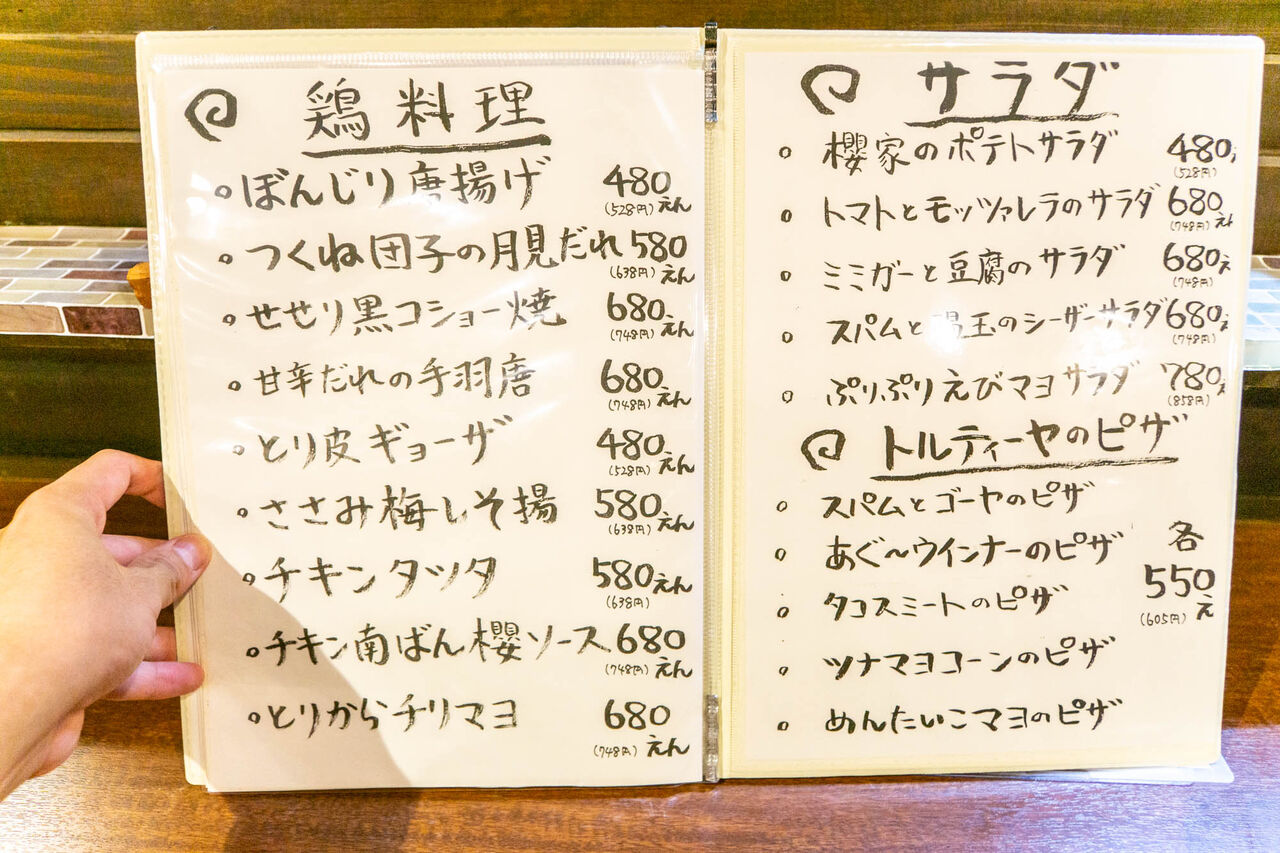 鶏料理
ぼんじり唐揚げ 480えん (528円)
つくね団子の月見だれ 580えん (638円)
せせり黒コショー焼 680えん (748円)
甘辛だれの手羽唐 680えん (748円)
とり皮ギョーザ 480えん (528円)
ささみ梅しそ揚 580えん (638円)
チキンタツタ 580えん (638円)
チキン南ばん櫻ソース 680えん (748円)
とりからチリマヨ 680えん (748円)
サラダ
櫻家のポテトサラダ 480 (528円)
トマトとモッツァレラのサラダ 680えん (748円)
ミミガーと豆腐のサラダ 680え (748円)
スパムと温玉のシーザーサラダ 680え (748円)
ぷりぷりえびマヨサラダ 780え (858円)
トルティーヤのピザ
スパムとゴーヤのピザ
あぐ〜ウインナーのピザ
タコスミートのピザ
ツナマヨコーンのピザ
めんたいこマヨのピザ
各
550え
(605円)